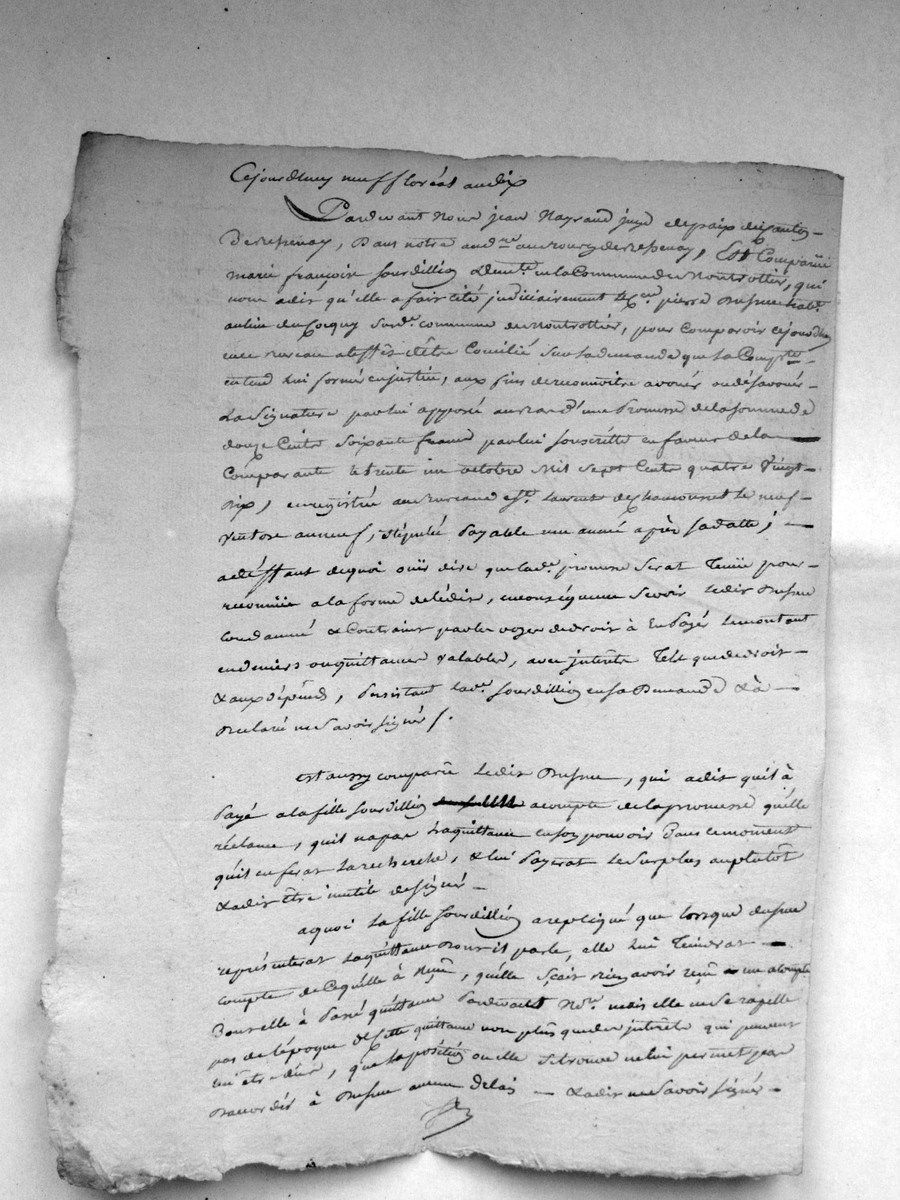 Cejourdhuy neuf floréal an dix
Pardevant Nous jean Raynaud juge de paix du canton
de Bessenay, Dans notre aud.re au Bourg de Bessenay, Est Comparüe
marie françoise Sourdillion demte. en la Commune de Montrottier, qui
nous a dit qu'elle a fait cité judiciairement le Cen. pierre habt.
au lieu du sur de. commune de Montrottier, pour Comparoir cejourdhuy
en ce Bureau a l'effés d'être Concilié Sur la demande que la Compte.
entend lui formé en justice, aux fins de reconnoitre avoués ou désavoués
La Signature par lui apposé au bas d'une Promesse de la somme de
douze Cents Soixante francs par lui souscritte en faveur de la
Comparante le trente un octobre Mil Sept Cents quatre Vingt
Dix, enregistrée au Bureau de St. Laurent de Chamousset le neuf
ventose an neuf, stipulée Payable une année après sa datte;
a déffaut de quoi ouir dire que lade. promesse Serat Tenüe pour
reconnüe a la forme de l'édit, en conséquence Se voir Ledit
Condamné & Contraint par les voyes de droit à En Payés Le montant
en deniers ou quittances valables, avec intérêts Tels que de droit
& aux dépends, Persistant lade. Sourdillion en sa Demande & à
Declaré ne Savoir signés /.
est aussy comparu Ledit , qui a dit qu'il à
Payé a la fille Sourdillion a compte de la promesse qu'elle
réclame, qu'il n'a pas la quittance en son pouvoir Dans ce moment
qu'il en ferat La recherche, & lui Payerat Le Surplus au plutôt
& a dit être inutile de signé
a quoi La fille Sourdillion a repliqué que lorsque
représenterat La quittance Dont il parle, elle Lui Tiendrat
compte de Ce qu'elle à Reçu, qu'elle Sçait bien avoir reçu un a compte
Pour elle à Passé quittance Pardevant Nre. mais elle ne Se rapelle
pas de l'époque de Cette quittance non plus que des intérêts qui peuvent
lui être dus, que La position ou elle Se trouve ne lui permet pas
D'accordés à aucun Delais — & a dit ne Savoir signés